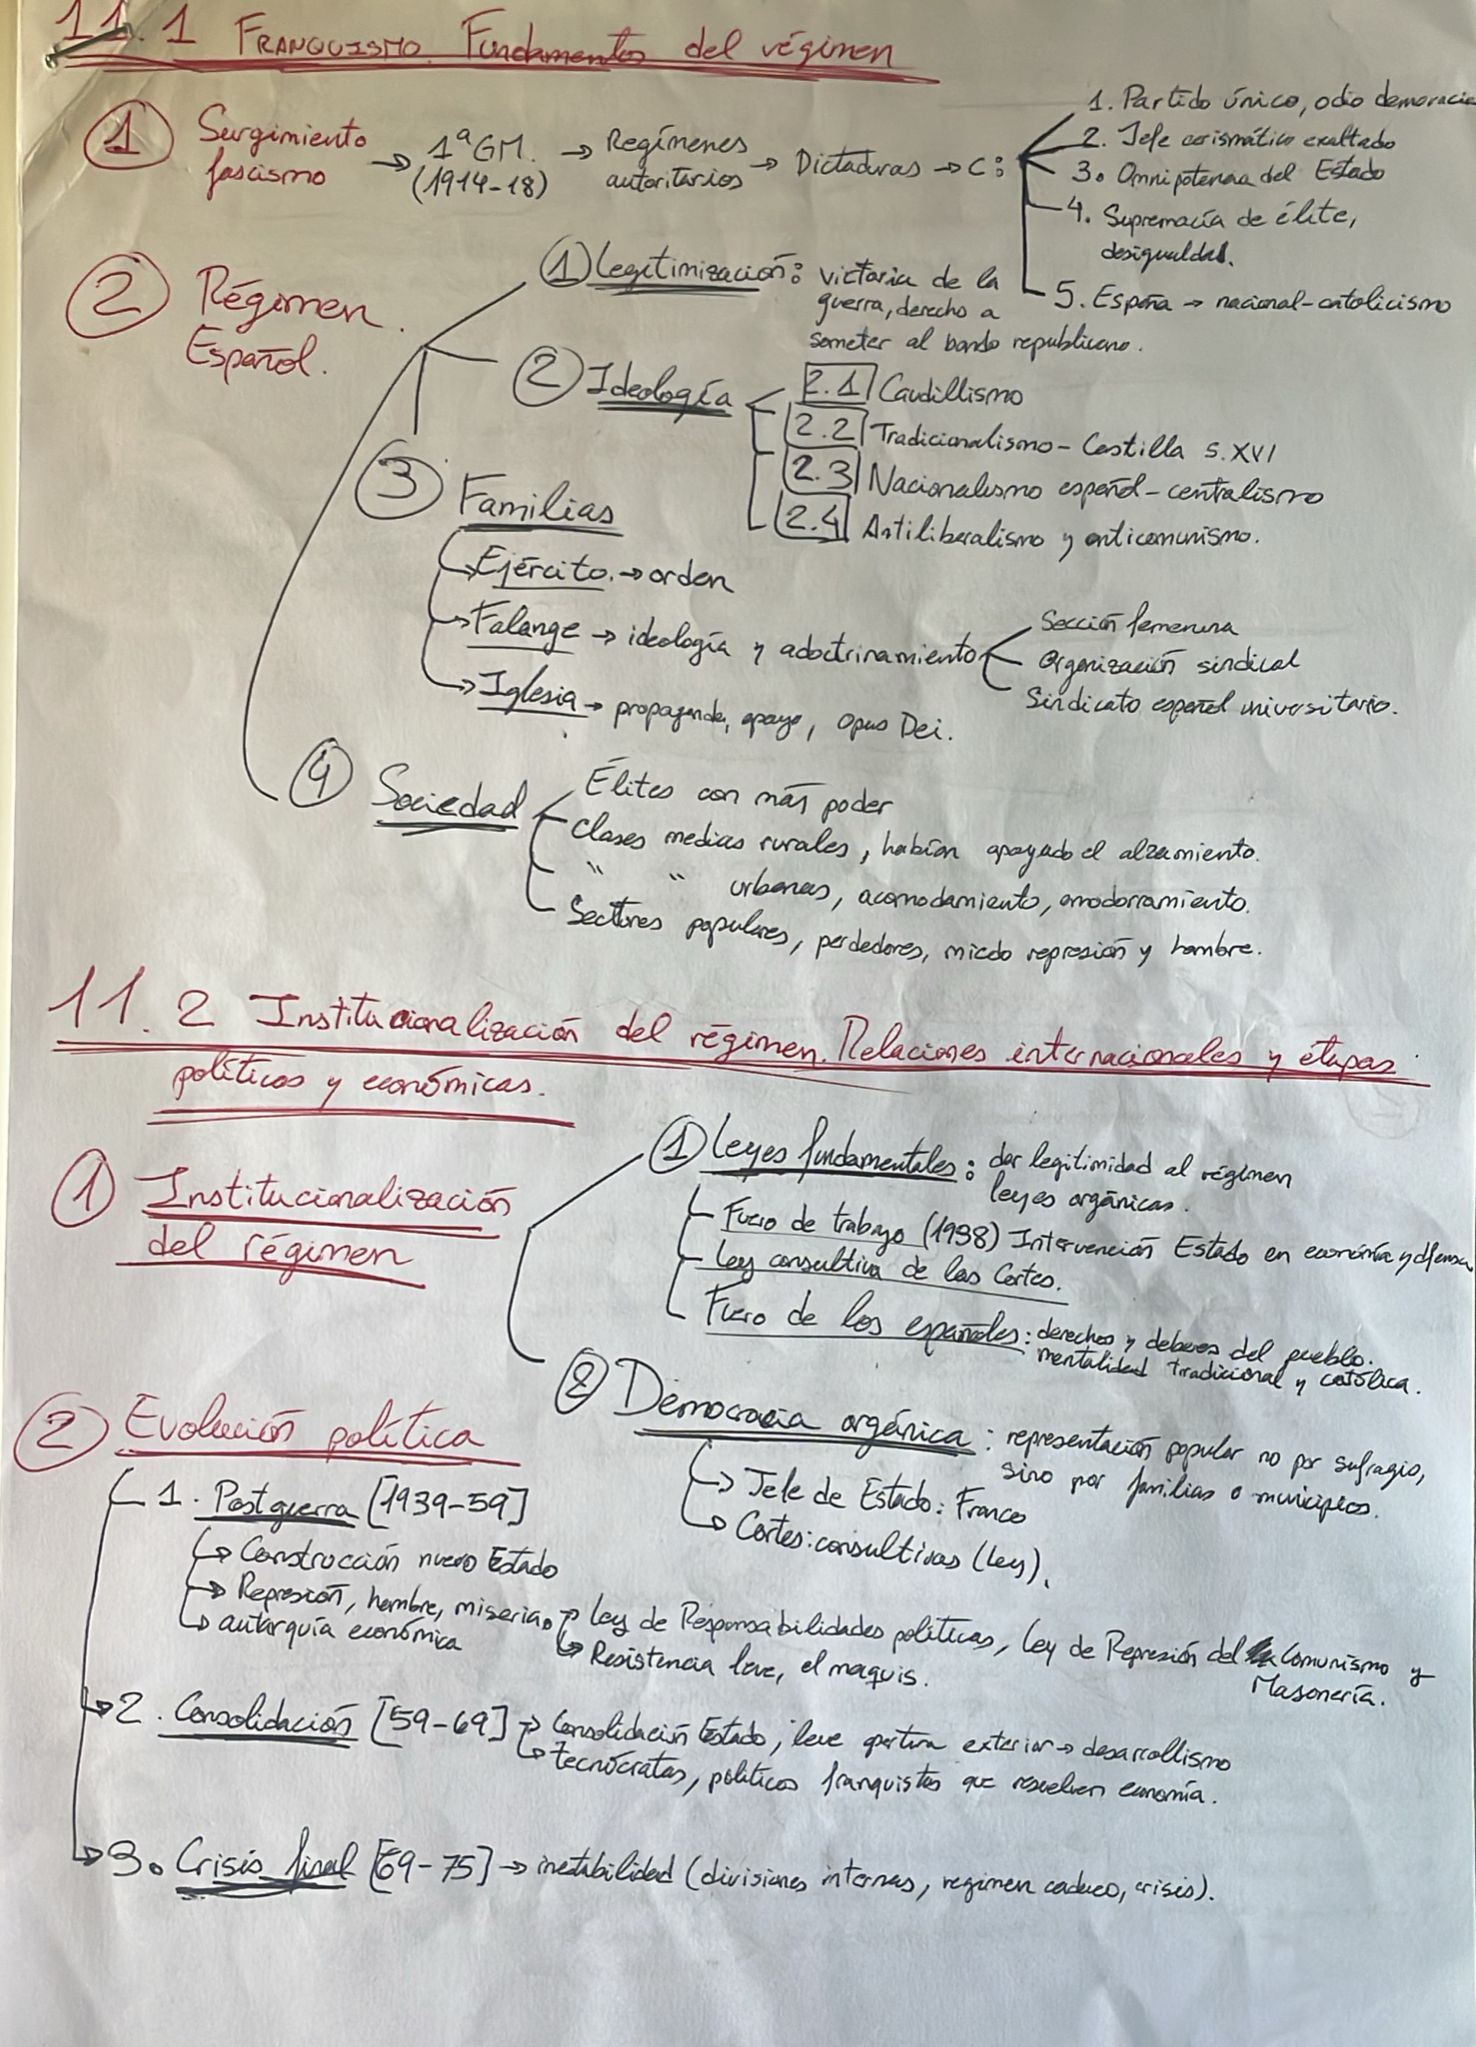 11.1 FRANQUISMO. Fundamentos del régimen
1 Surgimiento fascismo → 1ª GM. (1914-18) → Regímenes autoritarios → Dictaduras → C:
1. Partido único, odio democracia
2. Jefe carismático exaltado
3. Omnipotencia del Estado
4. Supremacía de élite,
desigualdad.
5. España → nacional-catolicismo
2 Régimen
Español.
1 Legitimización: victoria de la
guerra, derecho a
someter al bando republicano.
2 Ideología
2.1 Caudillismo
2.2 Tradicionalismo - Castilla s. XVI
2.3 Nacionalismo español - centralismo
2.4 Antiliberalismo y anticomunismo.
3 Familias
→ Ejército. → orden
→ Falange → ideología y adoctrinamiento
Sección femenina
Organización sindical
Sindicato español universitario.
→ Iglesia → propaganda, apoyo, Opus Dei.
4 Sociedad
Élites con más poder
Clases medias rurales, habían apoyado el alzamiento.
" " urbanas, acomodamiento, amodorramiento.
Sectores populares, perdedores, miedo represión y hambre.
11.2 Institucionalización del régimen. Relaciones internacionales y etapas
políticas y económicas.
1 Institucionalización
del régimen
1 Leyes fundamentales: dar legitimidad al régimen
leyes orgánicas.
Fuero de trabajo (1938) Intervención Estado en economía y defensa
Ley consultiva de las Cortes.
Fuero de los españoles: derechos y deberes del pueblo.
mentalidad tradicional y católica.
2 Democracia orgánica: representación popular no por sufragio,
sino por familias o municipios.
→ Jefe de Estado: Franco
→ Cortes: consultivas (Ley).
2 Evolución política
1. Postguerra [1939-59]
→ Construcción nuevo Estado
→ Represión, hambre, miseria. → Ley de Responsabilidades políticas, Ley de Represión del Comunismo y
Masonería.
→ Resistencia leve, el maquis.
→ autarquía económica
→ 2. Consolidación [59-69] → Consolidación Estado, leve apertura exterior → desarrollismo
→ tecnócratas, políticos franquistas que resuelven economía.
→ 3. Crisis final [69-75] → inestabilidad (divisiones internas, regimen caduco, crisis).